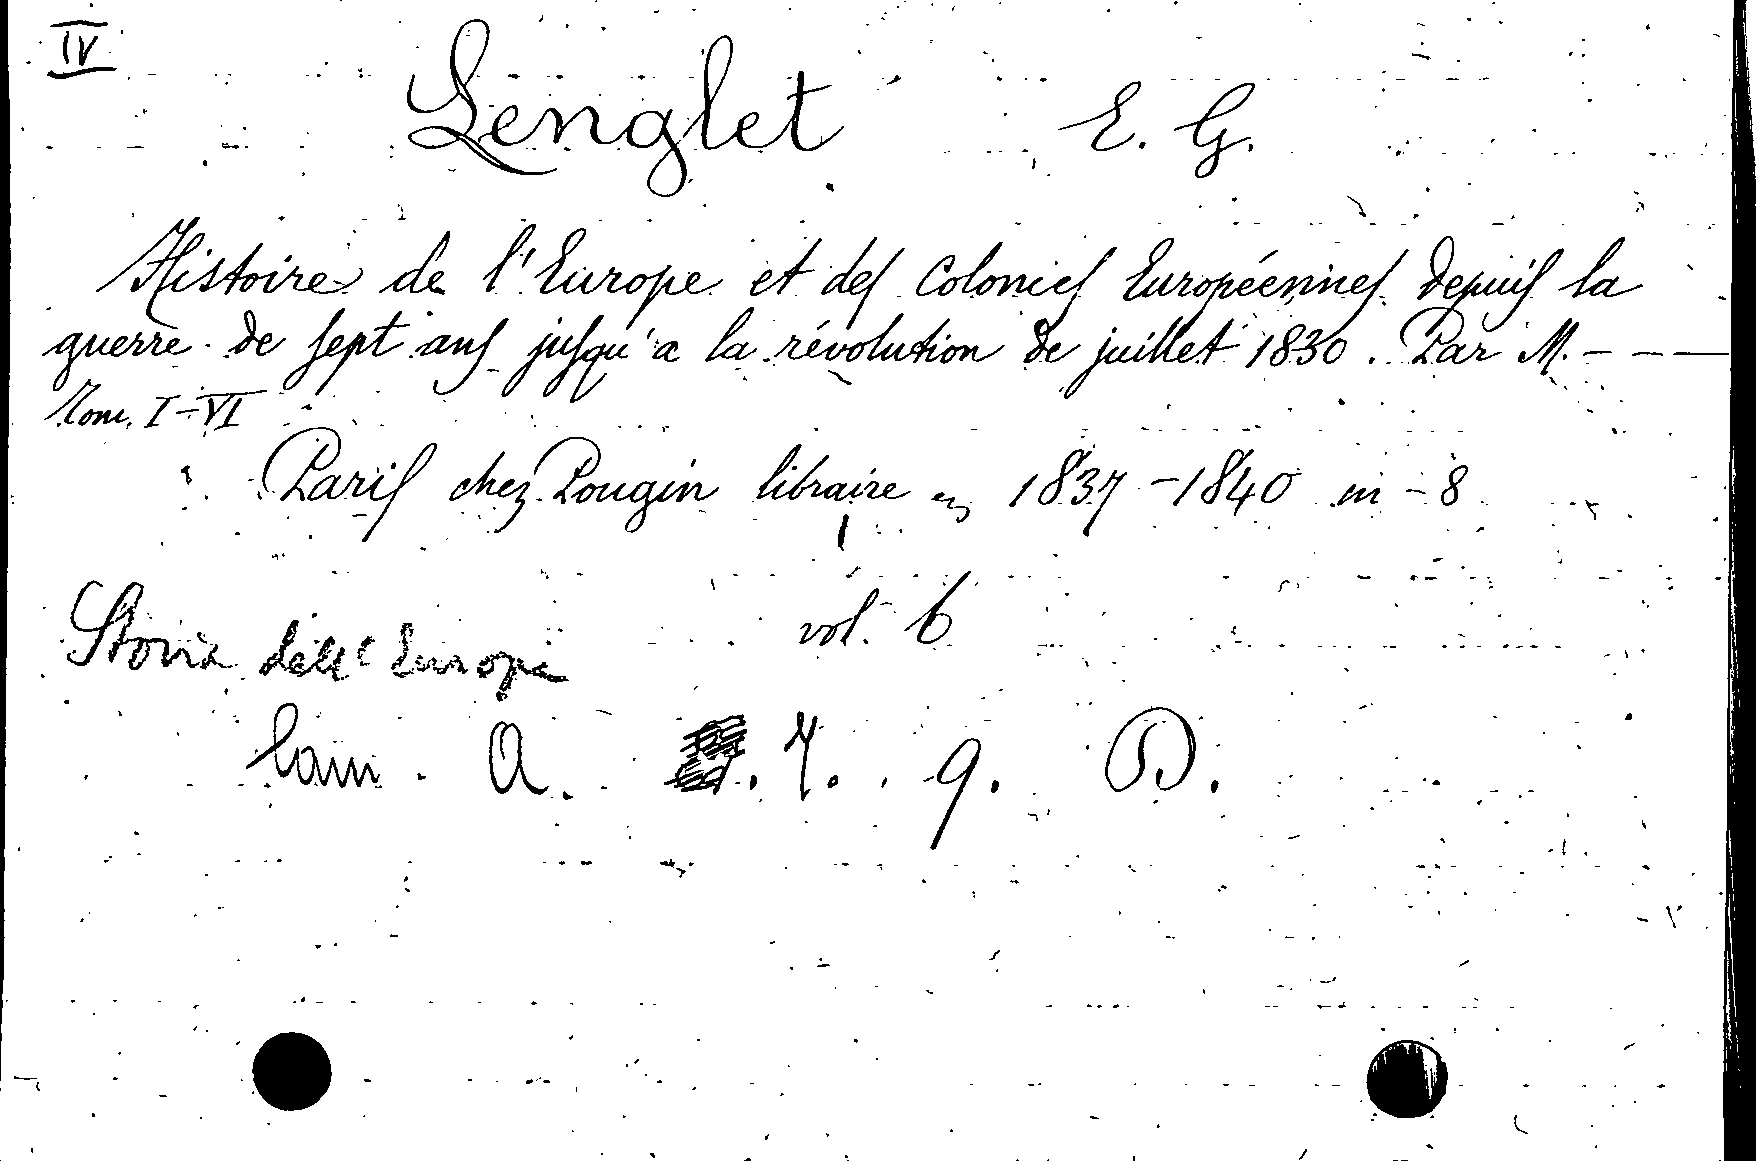 IV
Lenglet E. G.
Histoire de l'Europe et des Colonies Européennes depuis la
guerre de sept ans jusqu'a la révolution de juillet 1830. Par M. - - -
Tom. I-VI
Paris chez Pougin libraire 1837-1840 in-8
vol. 6
Storia dell'Europa
Cam. A. 7. 9. D.